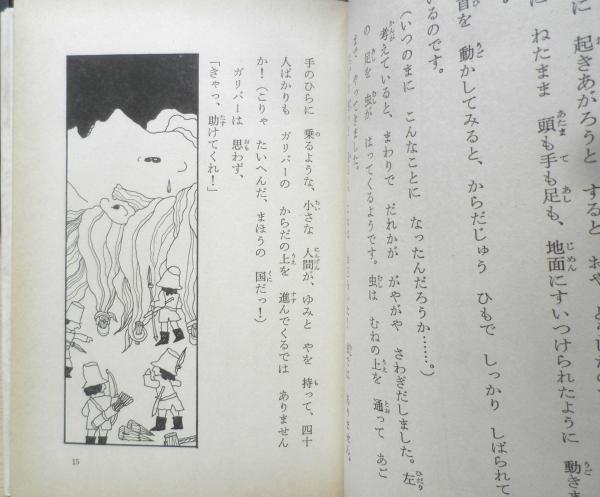 に 起きあがろうと すると お
に ねたまま 頭も手も足も、地面にすいつけられたように 動き
首を 動かしてみると、からだじゅう ひもで しっかり しばられて
いるのです。
(いつのまに こんなことに なったんだろうか……。)
考えていると、まわりで だれかが がやがや さわぎだしました。左
の 足を 虫が はってくるようです。虫は むねの上を 通って あご
まで やってきました。
手のひらに 乗るような、小さな 人間が、ゆみと やを 持って、四十
人ばかりも ガリバーの からだの上を 進んでくるでは ありません
か! (こりゃ たいへんだ、まほうの 国だっ!)
ガリバーは 思わず、
「きゃっ、助けてくれ!」
15